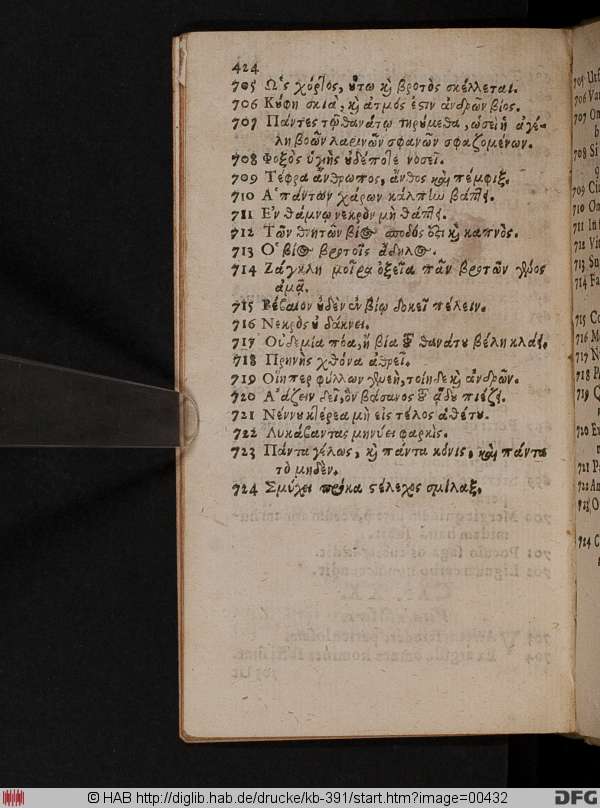 424
705 Ὡς χόρτος, οὕτω καὶ βροτὸς σκέλλεται.
706 Κύφη σκιὰ, καὶ ἀτμός ἐστιν ἀνδρῶν βίος.
707 Πάντες τῷ θανάτῳ τηρύμεθα, ὡσεὶ ἡ ἀγέ-
λη βοῶν λαρινῶν σφανῶν σφαζομένων.
708 Φοξὸς ὑγιὴς οὐδέποτε νοσεῖ.
709 Τέφρα ἄνθρωπος, ἄνθος καὶ πέμφιξ.
710 Ἁπάντων χάρων κάλπιω βάπτει.
711 Ἐν θάμνῳ νεκρὸν μὴ θάπτει.
712 Τῶν θνητῶν βίος σποδός ἐστι καὶ καπνὸς.
713 Ὁ βίος βροτοῖς ἄδηλος.
714 Ζάγκλη μοῖρα ὀξεῖα πᾶν βροτῶν γένος
ἀμᾷ.
715 Βέβαιον οὐδὲν ἐν βίῳ δοκεῖ πέλειν.
716 Νεκρὸς οὐ δάκνει.
717 Οὐδεμία πόα, ἢ βία τοῦ θανάτου βέλη κλάει.
718 Πρηνὴς χθόνα ἀθρεῖ.
719 Οἵηπερ φύλλων γενεὴ, τοίηδε καὶ ἀνδρῶν.
720 Αἰάζειν δεῖ, ὃν βάσανος τοῦ ᾅδου πιέζει.
721 Νέννυ κτέρεα μὴ εἰς τέλος ἀθέτου.
722 Λυκάβαντας μηνύει φαρκίς.
723 Πάντα γέλως, καὶ πάντα κόνις, καὶ πάντα
τὸ μηδέν.
724 Σμύχει πρόκα στέλεχος σμίλαξ.
705
706
707
708 Si
709
710
711 In
712
713
714 Fa
715
716
717
718
719
720
721
722
723
724
© HAB http://diglib.hab.de/drucke/kb-391/start.htm?image=00432
DFG